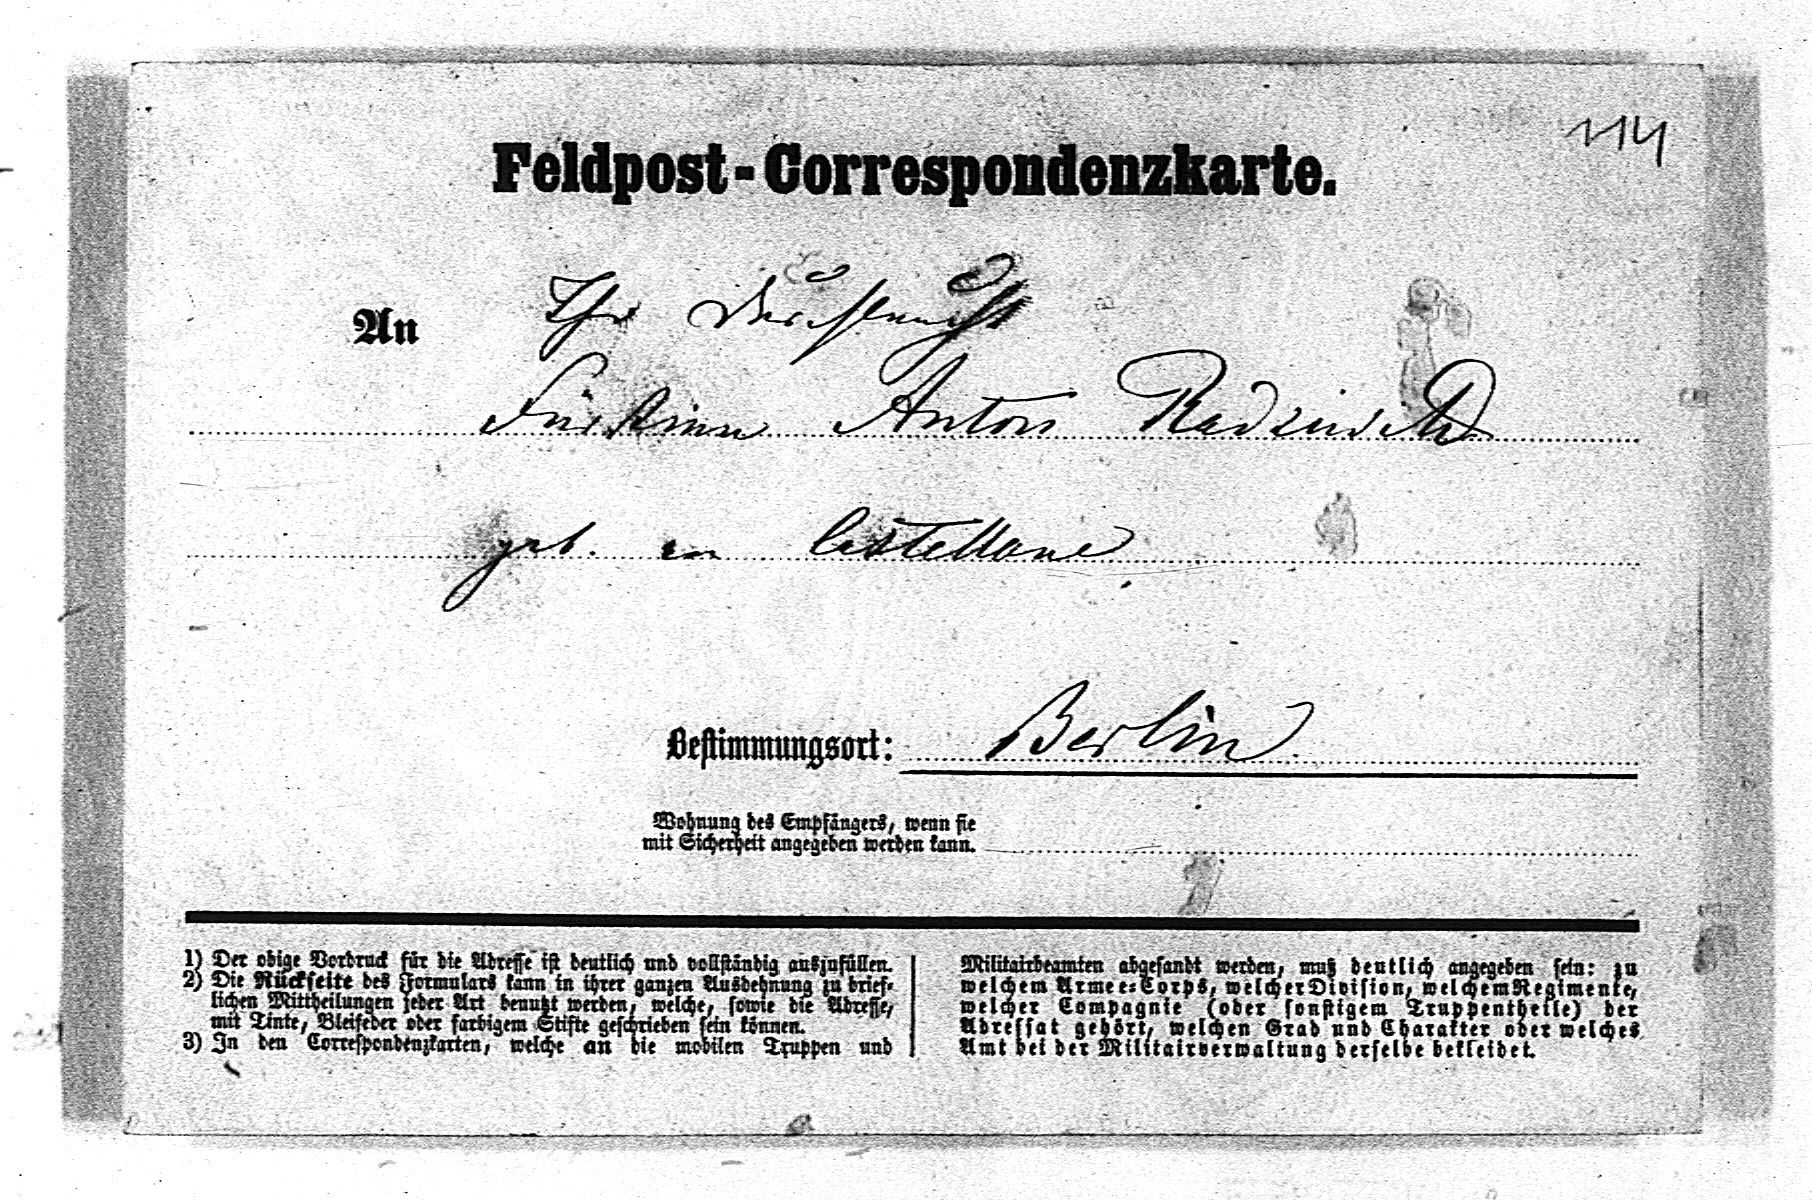 114
Feldpost-Correspondenzkarte.
An Ihr Durchlaucht
Fürstinn Anton Radziwill
geb. Castellane
Bestimmungsort: Berlin
Wohnung des Empfängers, wenn sie
mit Sicherheit angegeben werden kann.
1) Der obige Vordruck für die Adresse ist deutlich und vollständig auszufüllen.
2) Die Rückseite des Formulars kann in ihrer ganzen Ausdehnung zu brief-
lichen Mittheilungen jeder Art benutzt werden, welche, sowie die Adresse,
mit Tinte, Bleifeder oder farbigem Stifte geschrieben sein können.
3) In den Correspondenzkarten, welche an die mobilen Truppen und
Militairbeamten abgesandt werden, muß deutlich angegeben sein: zu
welchem Armee-Corps, welcher Division, welchem Regimente,
welcher Compagnie (oder sonstigem Truppentheile) der
Adressat gehört, welchen Grad und Charakter oder welches
Amt bei der Militairverwaltung derselbe bekleidet.